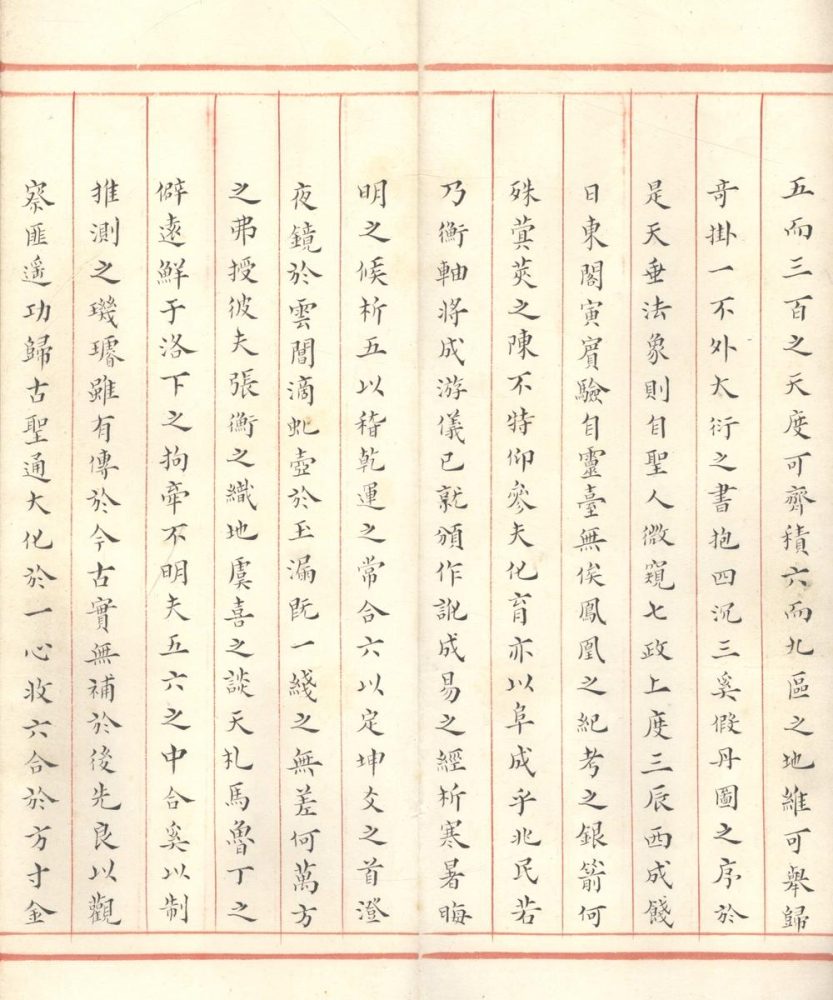 五而三百之天度可齊積六而九區之地維可舉歸
奇掛一不外大衍之書抱四沉三奚假丹圖之序於
是天垂法象則自聖人微窺七政上度三辰西成餞
日東閣寅賓驗自靈臺無俟鳳凰之紀考之銀箭何
殊蓂莢之陳不特仰參夫化育亦以阜成乎兆民若
乃衡軸將成游儀已就頒作訛成易之經析寒暑晦
明之候析五以稽乾運之常合六以定坤爻之首澄
夜鏡於雲閣滴虬壺於玉漏既一綫之無差何萬方
之弗授彼夫張衡之織地虞喜之談天札馬魯丁之
僻遠鮮于洛下之拘牽不明夫五六之中合奚以制
推測之璣璿雖有傳於今古實無補於後先良以觀
察匪遥功歸古聖通大化於一心收六合於方寸金